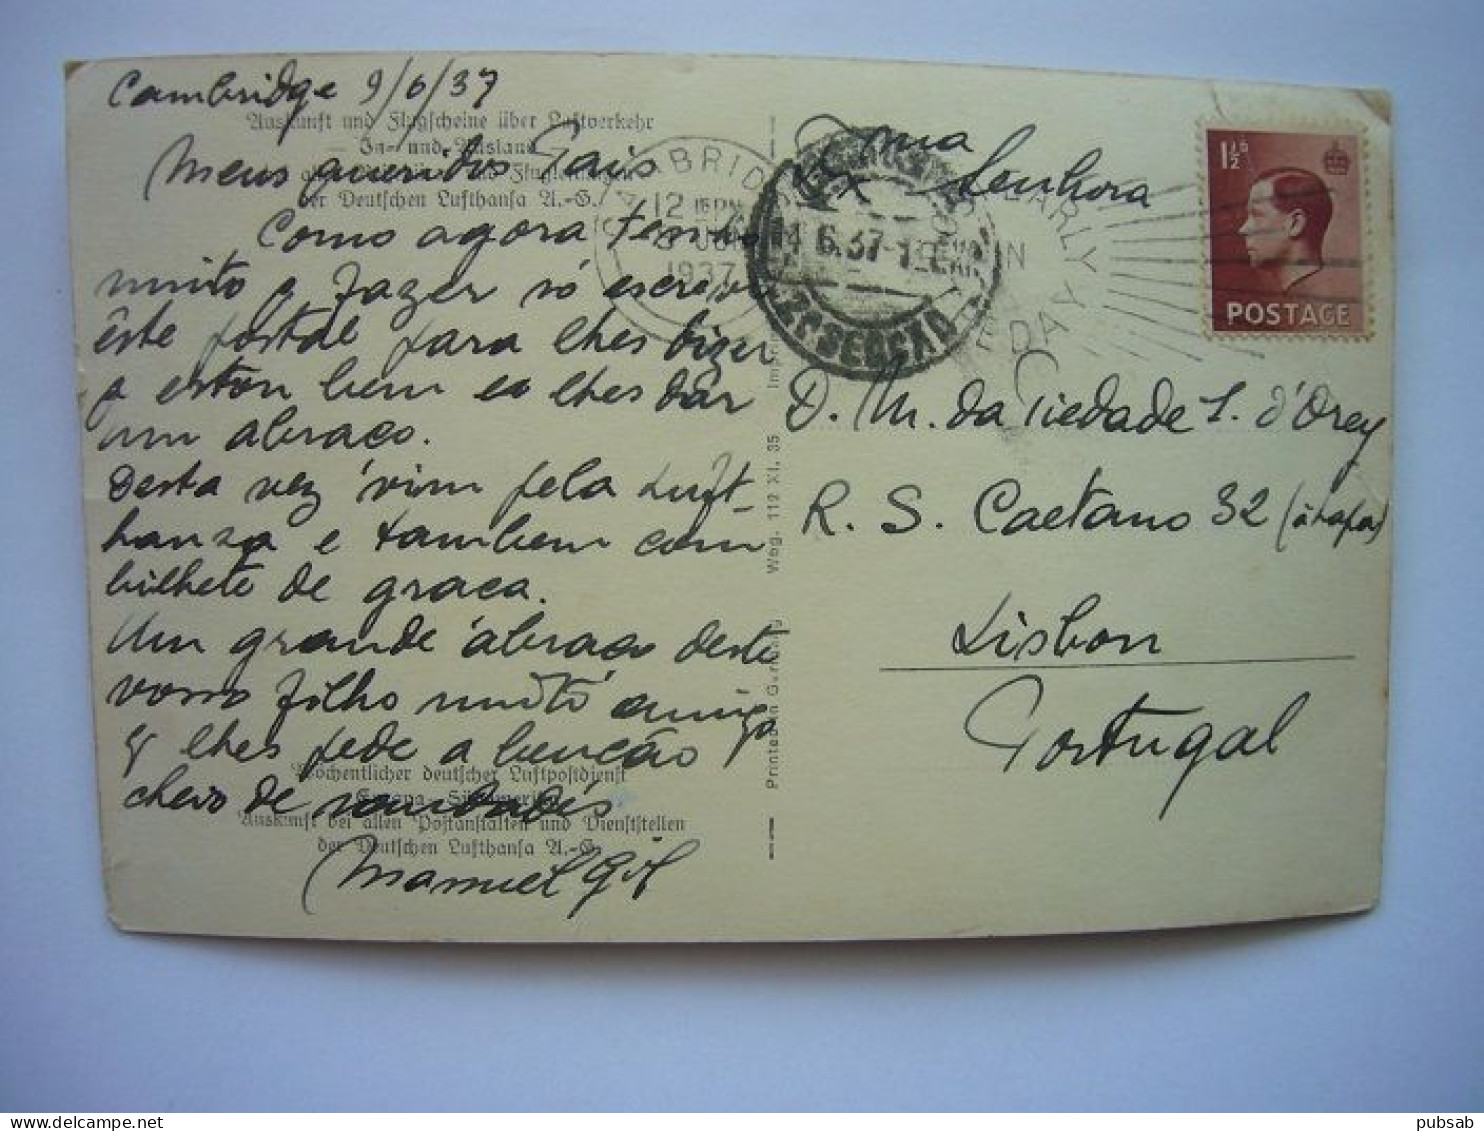 Cambridge 9/6/37
Auskunft und Flugscheine über Luftverkehr
— In- und Ausland —
der Deutschen Lufthansa A.-G.
Meus queridos Pais
Como agora tenho
muito q fazer só escrevo
êste postal para lhes dizer
q estou bem e lhes dar
um abraço.
Desta vez vim pela Luft-
hansa e tambem com
bilhete de graça.
Um grande abraço deste
vosso filho muito amigo
q lhes pede a benção
cheio de saudades
Manuel Gil
Wöchentlicher deutscher Luftpostdienst
Europa - Südamerika
Auskunft bei allen Postanstalten und Dienststellen
der Deutschen Lufthansa A.-G.
Printed in Germany Weg. 112 XI. 35
CAMBRIDGE
12 15 PM
1937
14.6.37-1
SECÇÃO
EARLY
IN
DAY
1½D
POSTAGE
Exma
Senhora
D. M. da Piedade S. d'Orey
R. S. Caetano 32 (à Lapa)
Lisbon
Portugal